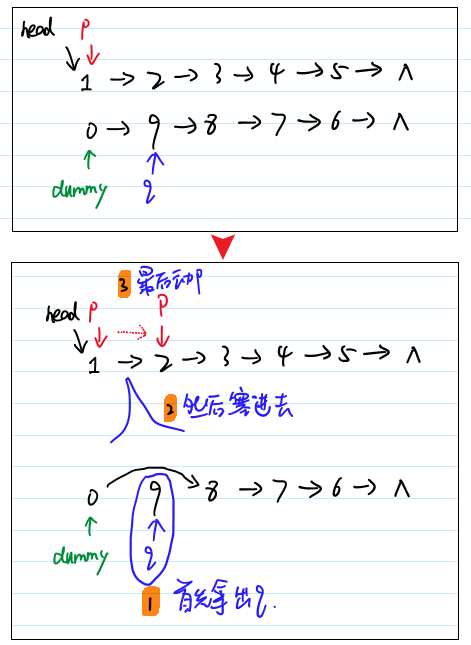 head p
1 → 2 → 3 → 4 → 5 → ∧
0 → 9 → 8 → 7 → 6 → ∧
dummy q
3 最后动p
head p p
1 → 2 → 3 → 4 → 5 → ∧
2 然后塞进去
0 9 8 → 7 → 6 → ∧
dummy q
1 首先拿出q.